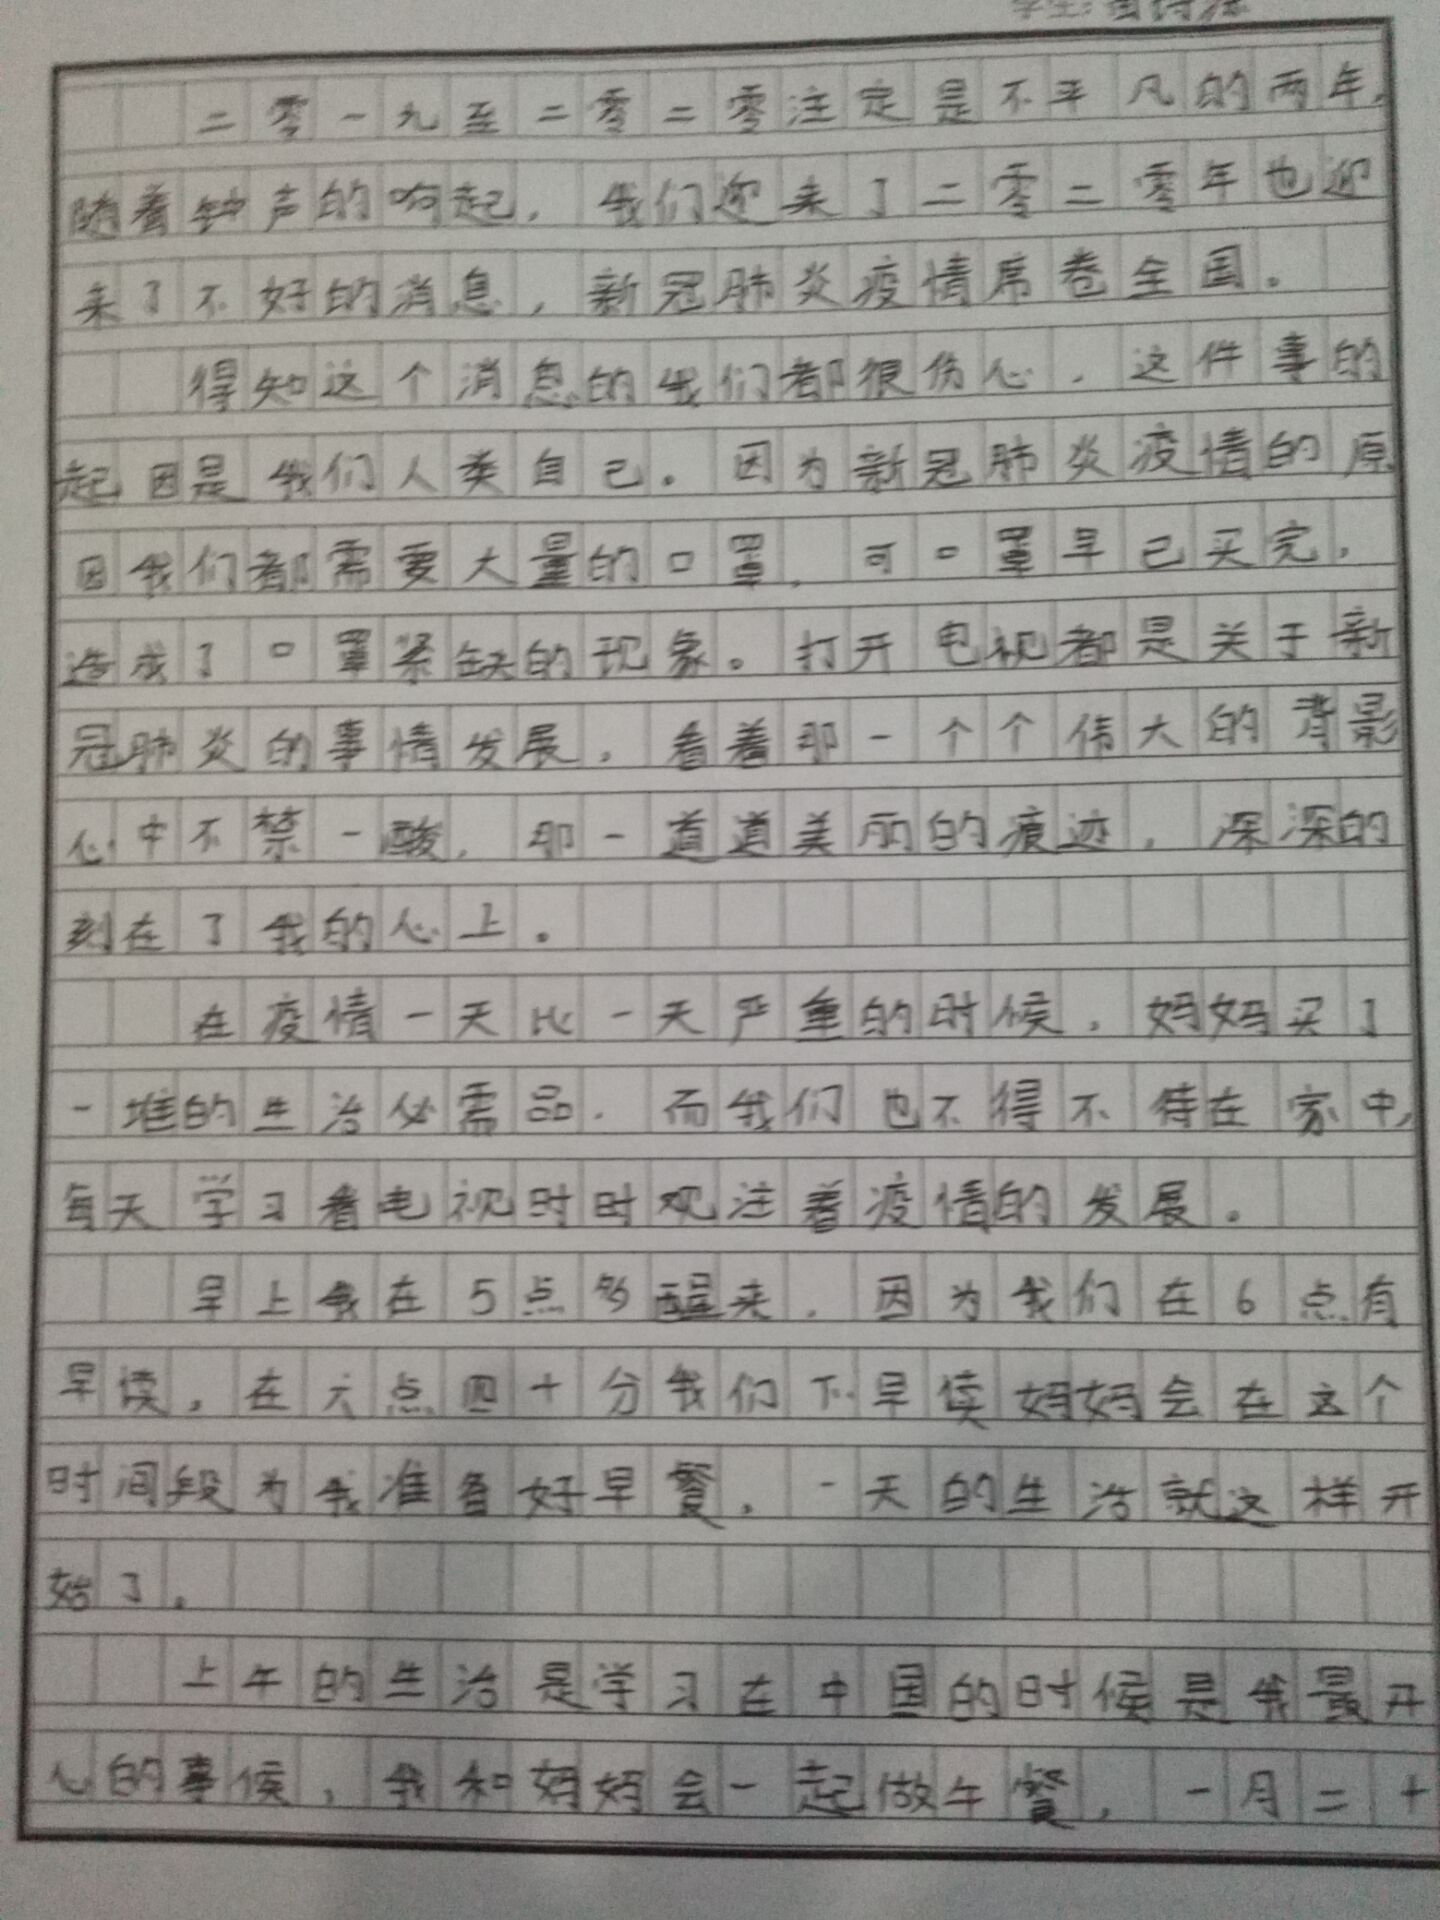 学生:
二零一九至二零二零注定是不平凡的两年,
随着钟声的响起,我们迎来了二零二零年也迎
来了不好的消息,新冠肺炎疫情席卷全国。
得知这个消息的我们都很伤心.这件事的
起因是我们人类自己。因为新冠肺炎疫情的原
因我们都需要大量的口罩,可口罩早已买完,
造成了口罩紧缺的现象。打开电视都是关于新
冠肺炎的事情发展,看着那一个个伟大的背影
心中不禁一酸,那一道道美丽的痕迹,深深的
刻在了我的心上。
在疫情一天比一天严重的时候,妈妈买了
一堆的生活必需品.而我们也不得不待在家中,
每天学习看电视时时观注着疫情的发展。
早上我在5点多醒来.因为我们在6点有
早读,在六点四十分我们下早读妈妈会在这个
时间段为我准备好早餐,一天的生活就这样开
始了。
上午的生活是学习在中国的时候是我最开
心的事候,我和妈妈会一起做午餐,一月二十